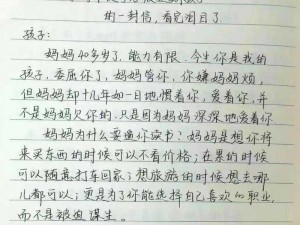 的一封信，看完泪目了
孩子：
妈妈40多岁了，能力有限，今生你是我的
孩子，委屈你了，妈妈管你，你嫌妈妈烦，
但妈妈却十几年如一日地惯着你，爱着你，并
不是妈妈欠你的，只是因为妈妈深深地爱着你
妈妈为什么要逼你读书？妈妈是想你将
来买东西的时候可以不看价格；在累的时候
可以随意打车回家；想旅游的时候想去哪
儿都可以；更是为了你能选择自己喜欢的职业，
而不是被迫谋生。